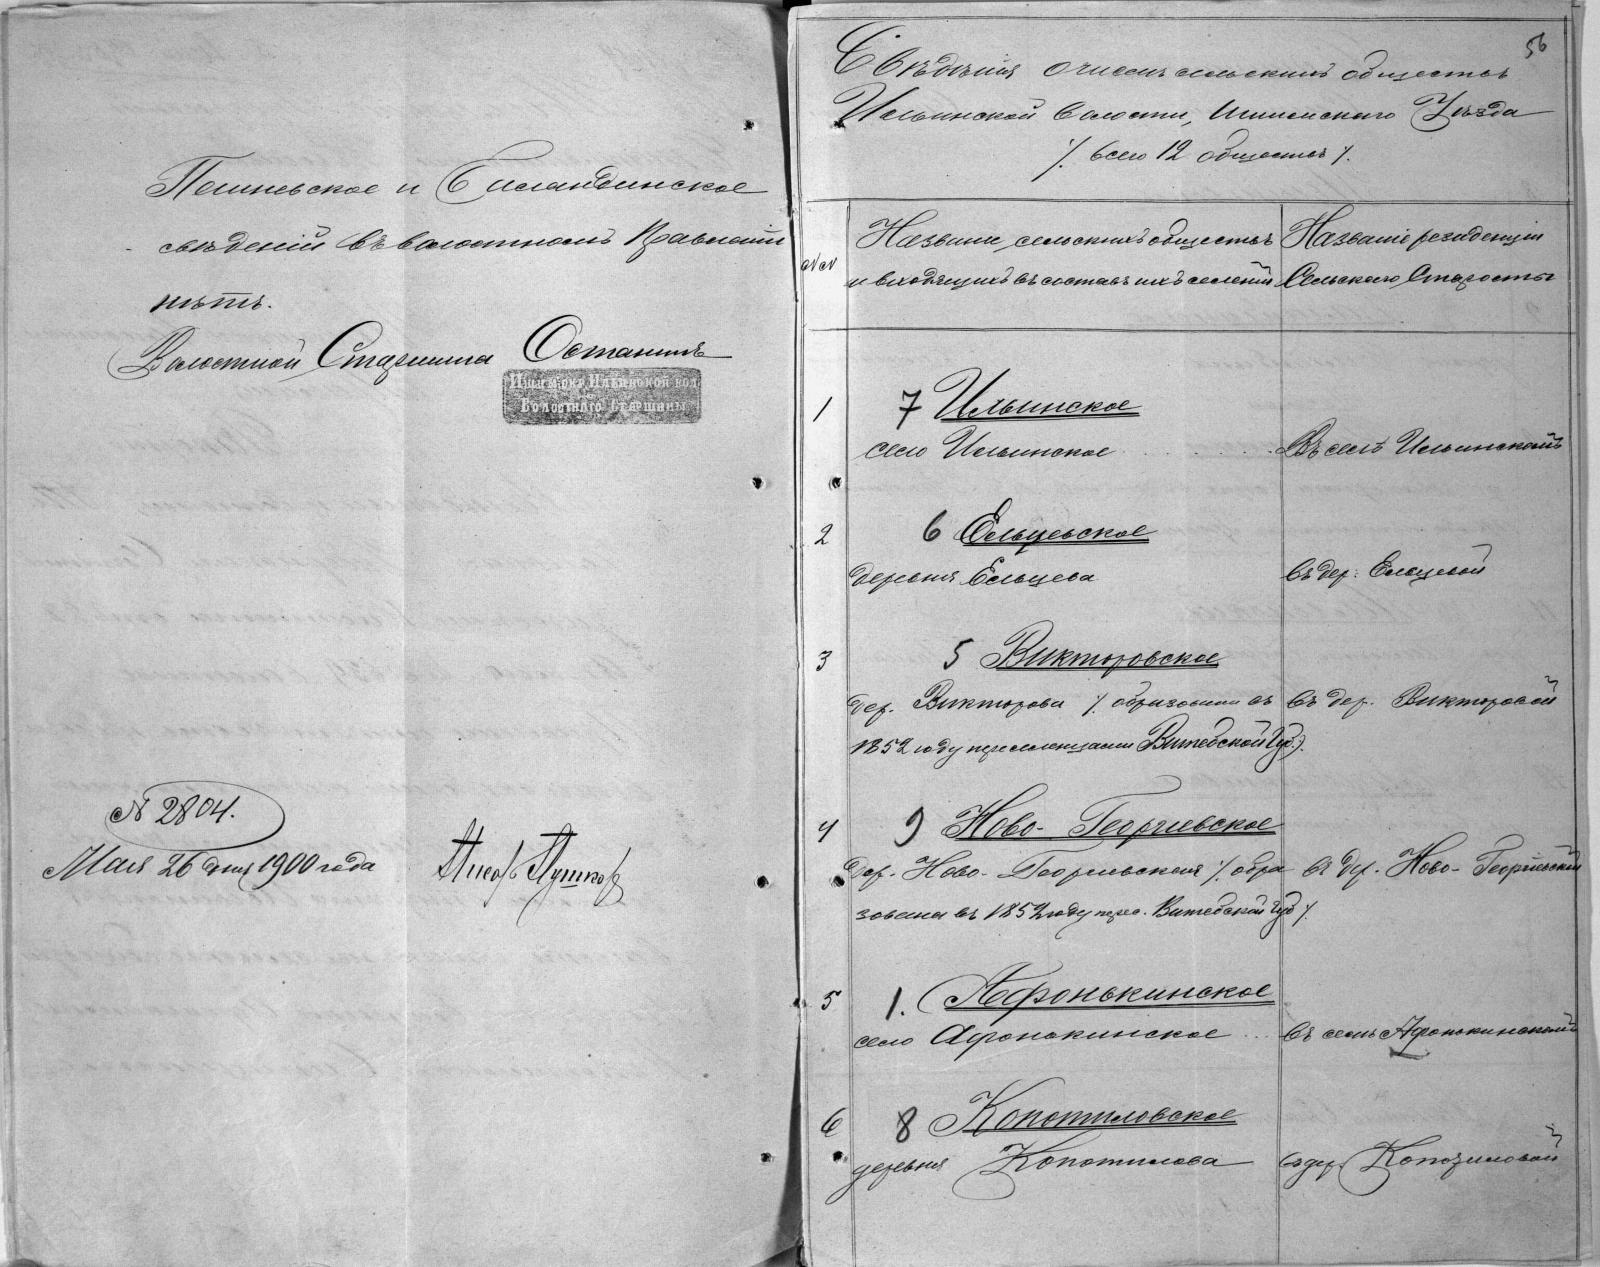 Пешневское и Силандинское
сведений въ волостномъ Правленіи
нѣтъ.
Волостной Старшина Останинъ
Ишим. окр. Ильинской вол.
Волостного Старшины
N 2804.
Мая 26 дня 1900 года
Писарь Пушкар
56
Свѣдѣнія о числѣ сельскихъ обществъ
Ильинской волости, Ишимскаго Уѣзда
/. всего 12 обществъ /.
NN
Названіе сельскихъ обществъ
и входящихъ въ составъ ихъ селеній
Названіе резиденціи
Сельскаго Старосты
1 7 Ильинское
село Ильинское въ селѣ Ильинскомъ
2 6 Ельцевское
деревня Ельцева въ дер. Ельцевой
3 5 Викторовское
дер. Викторова /. образована въ въ дер. Викторовой
1852 году переселенцами Витебской Губ.).
4 9 Ново-Георгіевское
дер. Ново-Георгіевская /. обра въ дер. Ново-Георгіевской
зована въ 1852 году перес. Витебской губ /.
5 1. Афонькинское
село Афонькинское въ селѣ Афонькинскомъ
6 8 Копотиловское
деревня Копотилова въ дер. Копотиловой